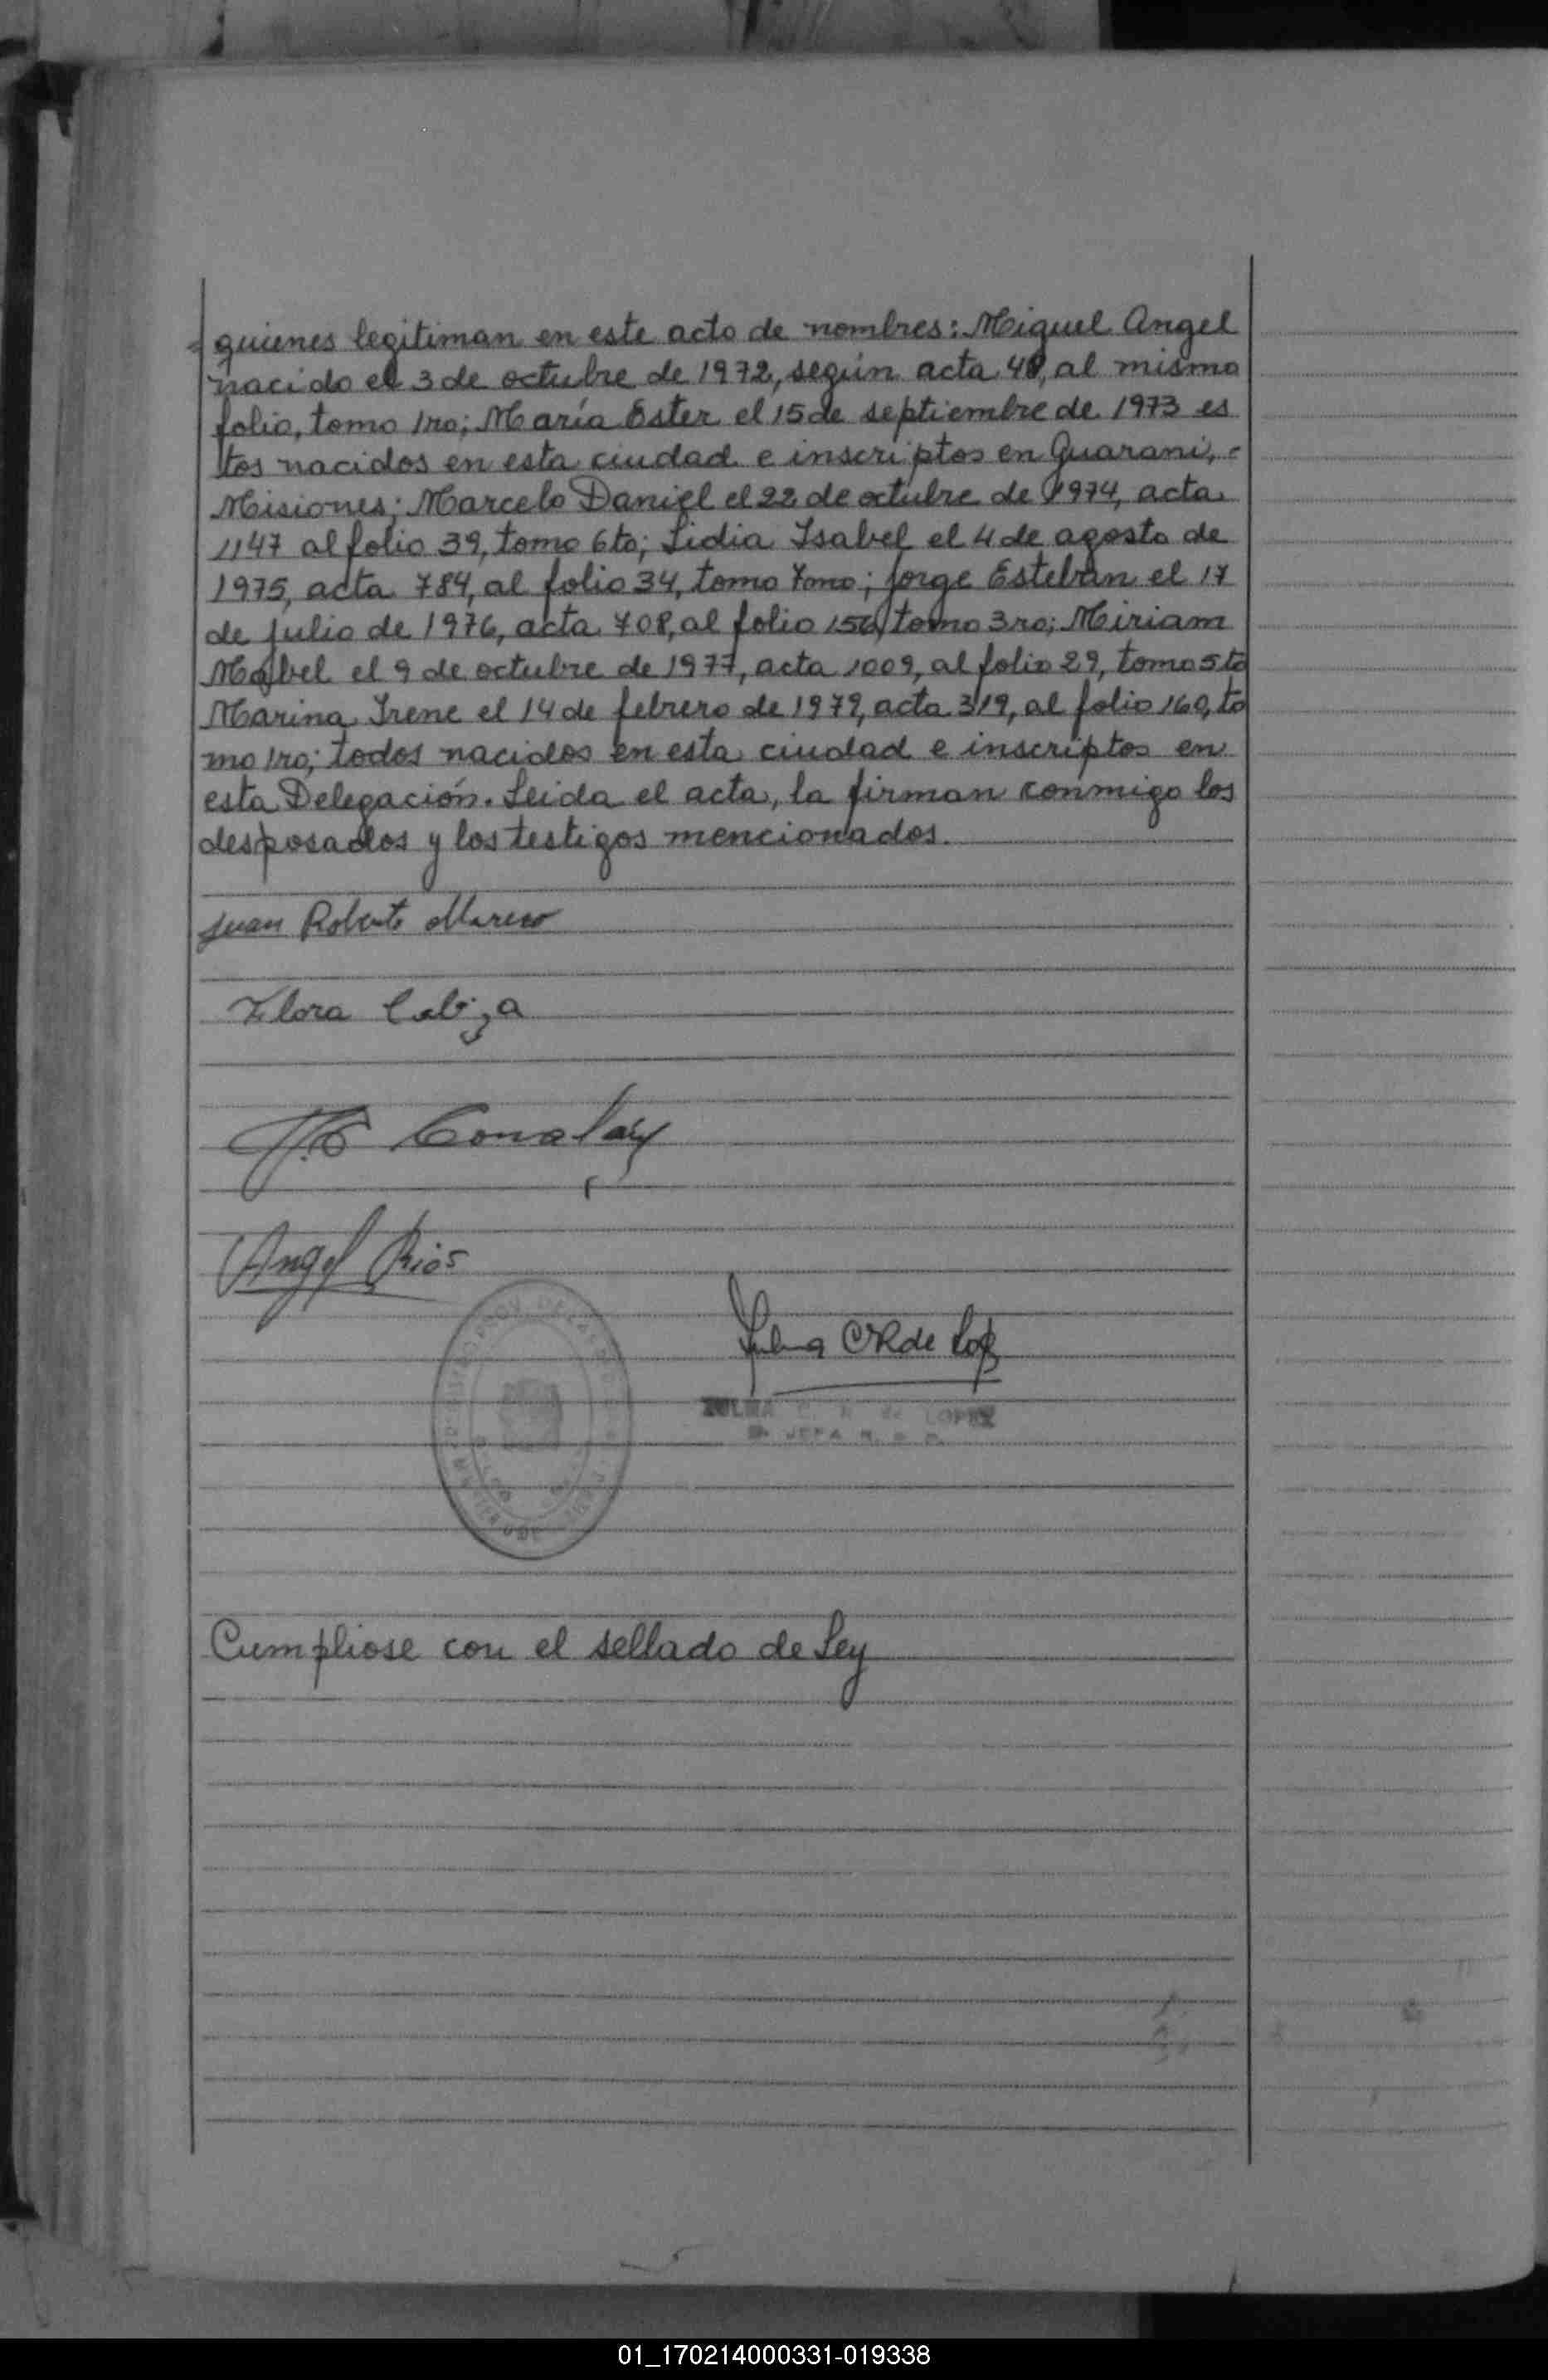 quienes legitiman en este acto de nombres: Miguel Angel
nacido el 3 de octubre de 1972, según acta 48, al mismo
folio, tomo 1ro; María Ester el 15 de septiembre de 1973 es
tos nacidos en esta ciudad e inscriptos en Guaraní, -
Misiones; Marcelo Daniel el 22 de octubre de 1974, acta
1147 al folio 39, tomo 6to; Lidia Isabel el 4 de agosto de
1975, acta 784, al folio 34, tomo 4mo; Jorge Esteban el 17
de julio de 1976, acta 708, al folio 156, tomo 3ro; Miriam
Mabel el 9 de octubre de 1977, acta 1009, al folio 29, tomo 5to
Marina Irene el 14 de febrero de 1979, acta 319, al folio 160, to
mo 1ro; todos nacidos en esta ciudad e inscriptos en
esta Delegación. Leida el acta, la firman conmigo los
desposados y los testigos mencionados.
Juan Roberto
Flora
Angel Rios
Zulma CR de Lopez
ZULMA C. R. de LOPEZ
JEFA R.
Cumpliose con el sellado de Ley
01_170214000331-019338